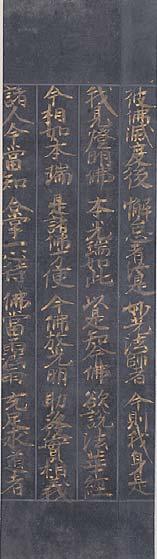 彼佛滅度後 懈怠者汝是 妙光法師者 今則我身是
我見燈明佛 本光瑞如此 以是知今佛 欲說法華經
今相如本瑞 是諸佛方便 今佛放光明 助發實相義
諸人今當知 合掌一心待 佛當雨法雨 充足求道者